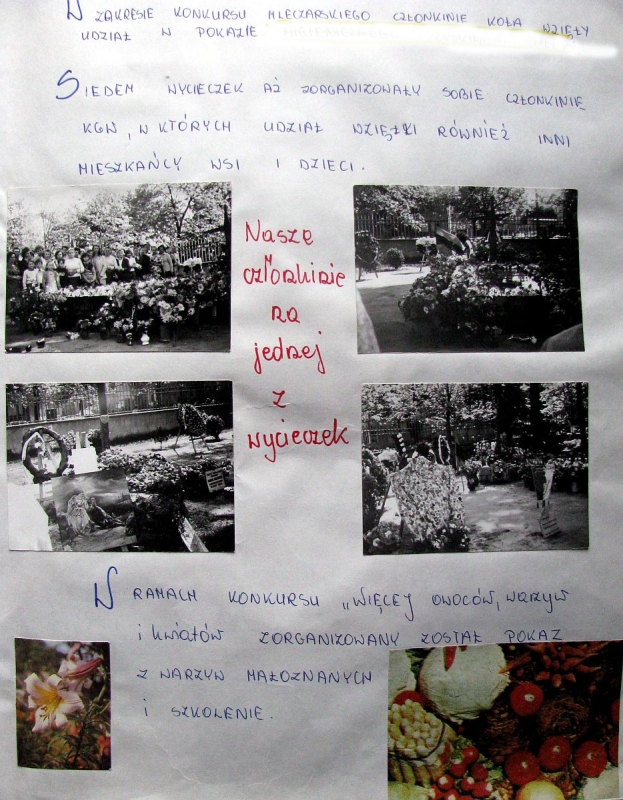 W ZAKRESIE KONKURSU MLECZARSKIEGO CZŁONKINIE KOŁA WZIĘŁY
UDZIAŁ W POKAZIE
SIEDEM WYCIECZEK AŻ ZORGANIZOWAŁY SOBIE CZŁONKINIE
KGW, W KTÓRYCH UDZIAŁ WZIĘŁI RÓWNIEŻ INNI
MIESZKAŃCY WSI I DZIECI.
Nasze
członkinie
na
jednej
z
wycieczek
W RAMACH KONKURSU „WIĘCEJ OWOCÓW, WARZYW
i kwiatów ZORGANIZOWANY ZOSTAŁ POKAZ
Z WARZYW MAŁOZNANYCH
i SZKOLENIE.